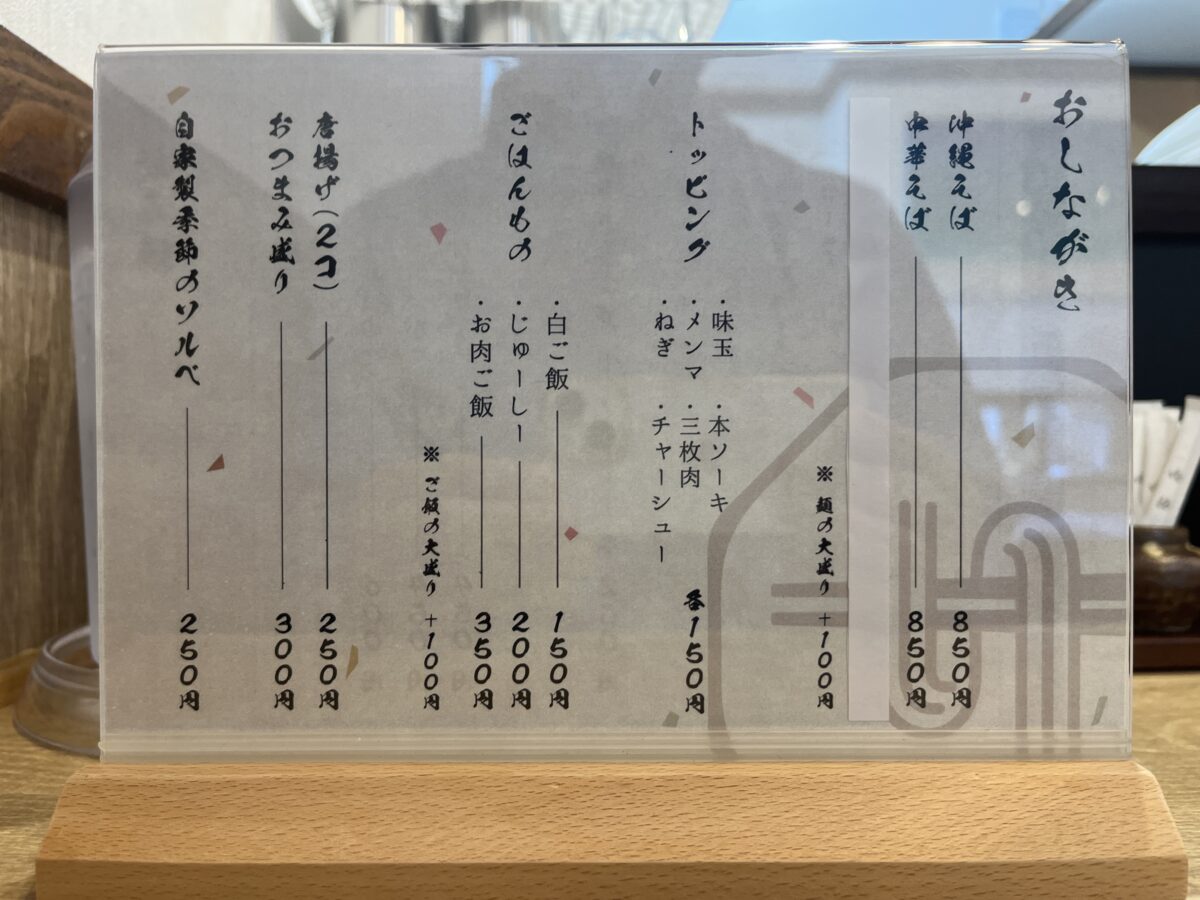 おしながき
沖縄そば 850円
中華そば 850円
※ 麺の大盛り +100円
トッピング
・味玉 ・本ソーキ
・メンマ ・三枚肉
・ねぎ ・チャーシュー
各150円
ごはんもの
・白ご飯 150円
・じゅーしー 200円
・お肉ご飯 350円
※ ご飯の大盛り +100円
唐揚げ(2コ) 250円
おつまみ盛り 300円
自家製季節のソルベ 250円